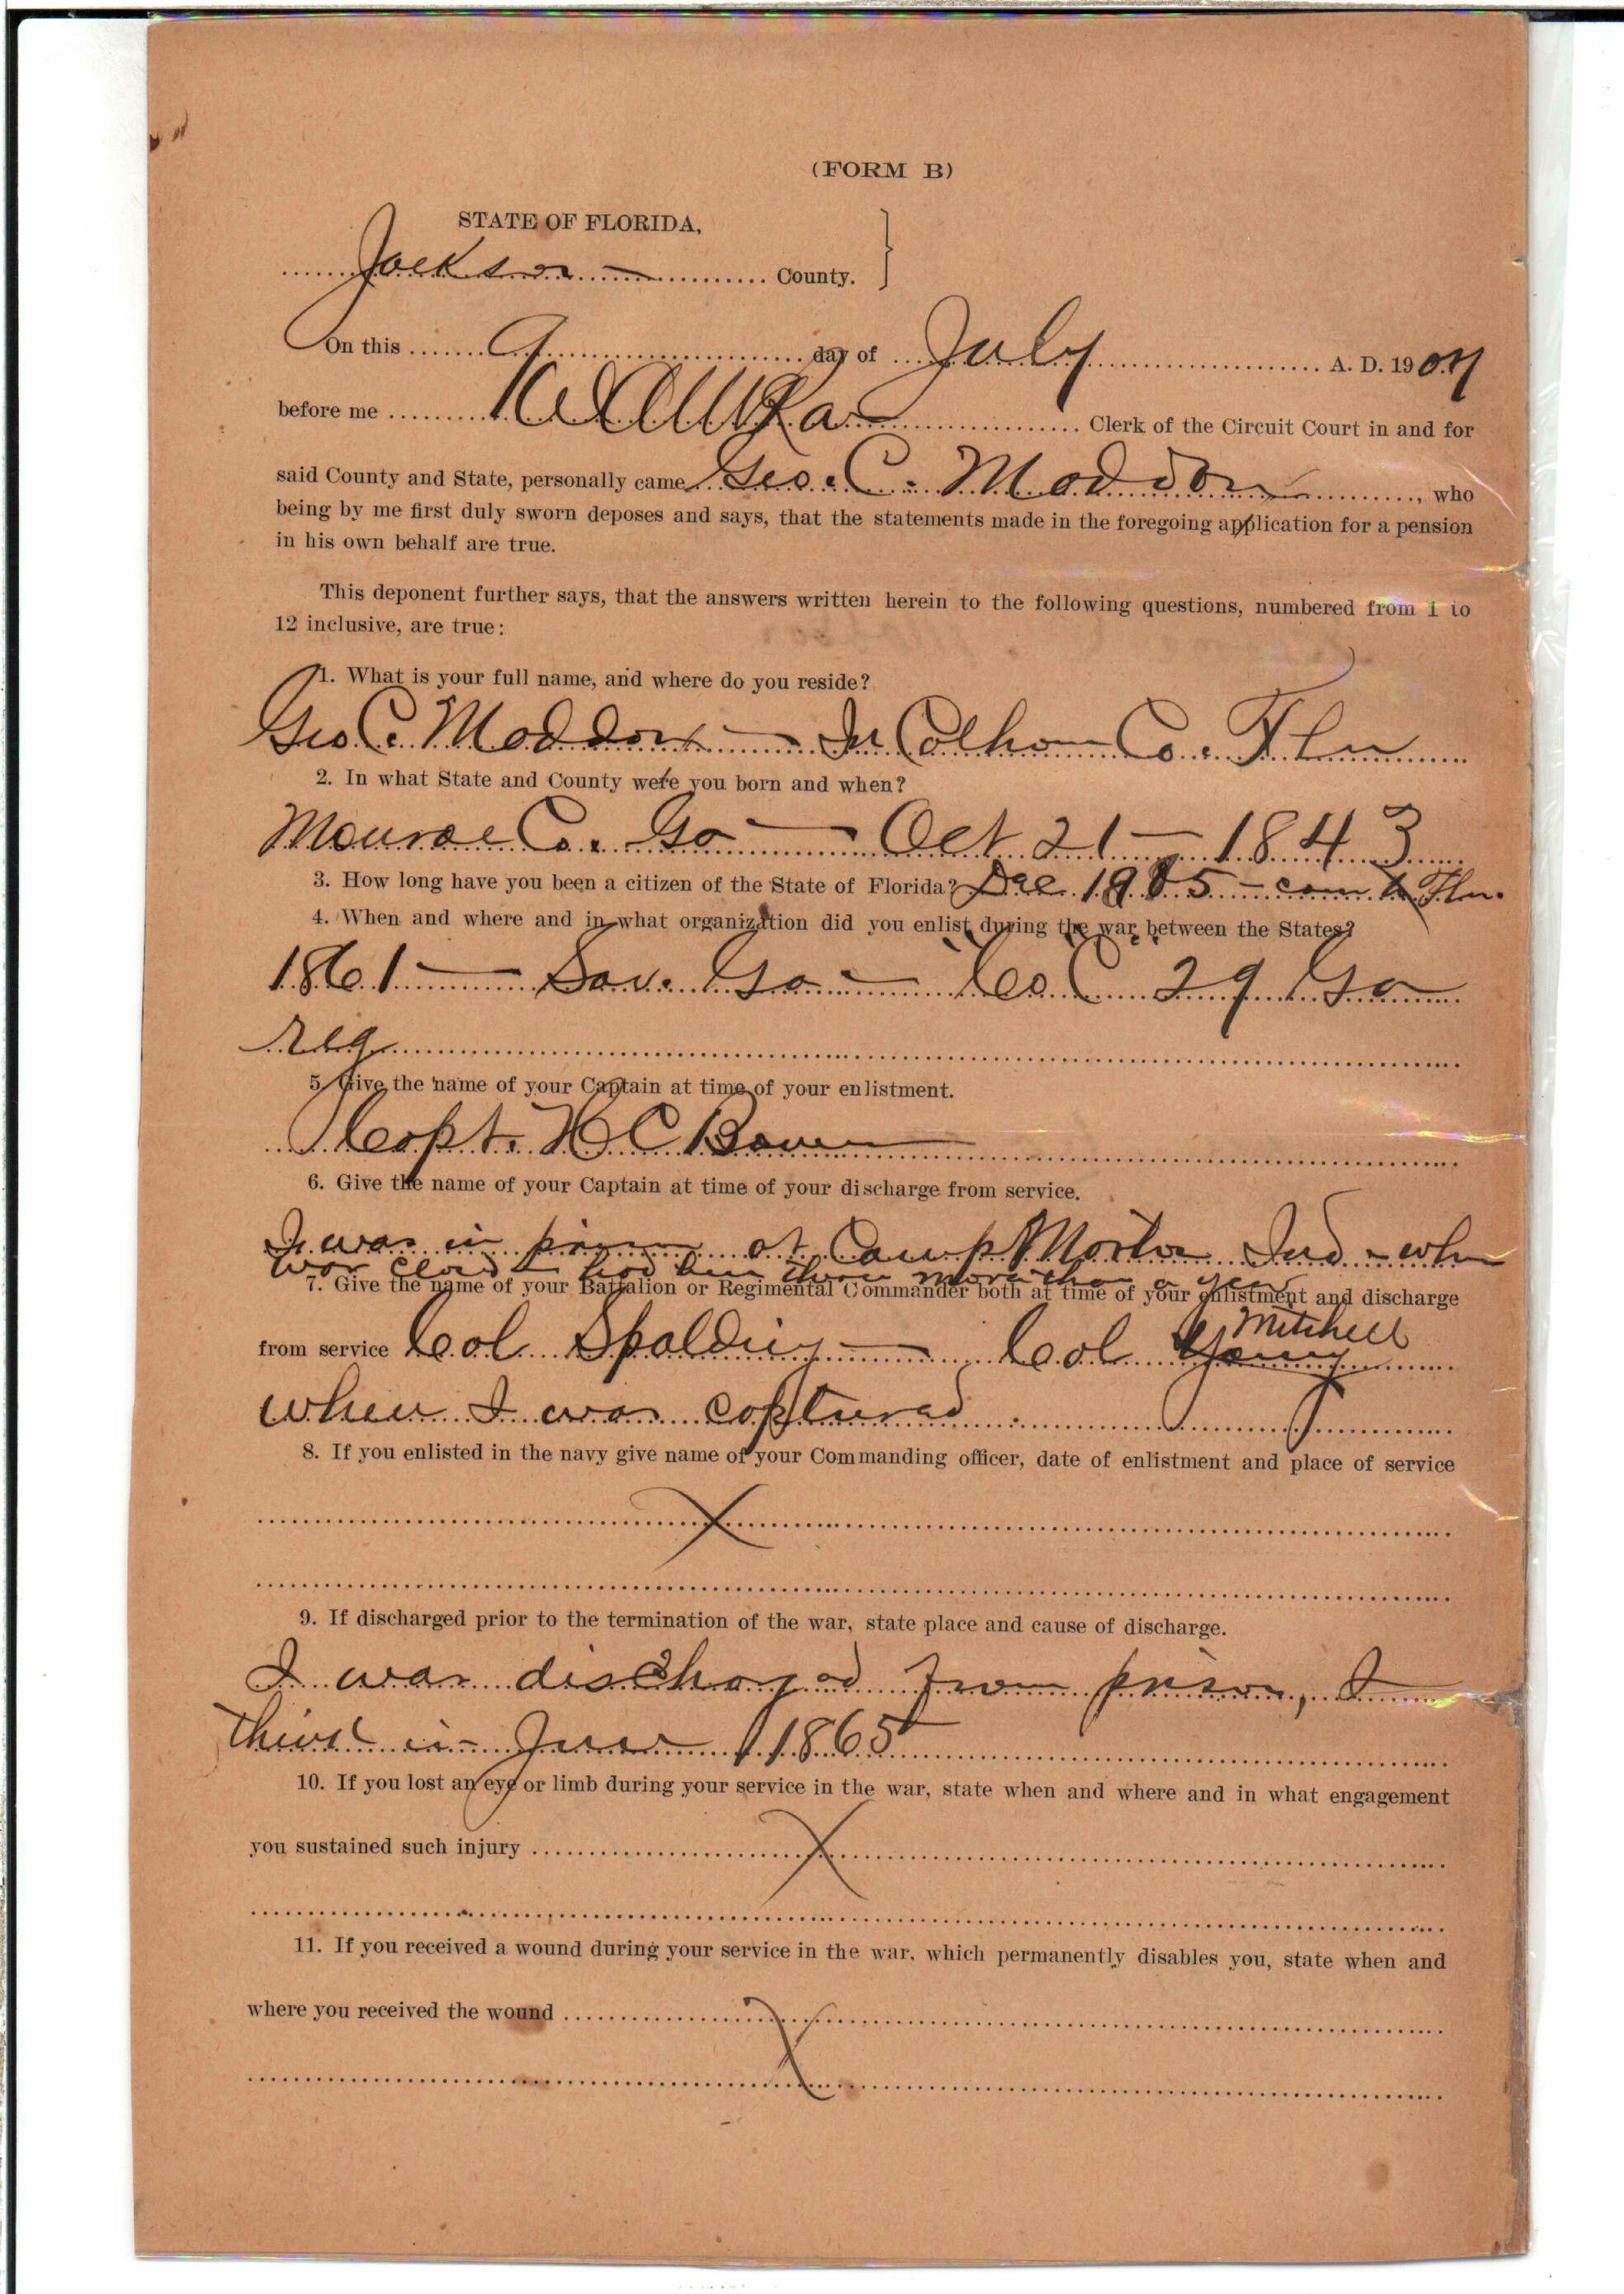 (FORM B)
STATE OF FLORIDA,
Jackson County.
On this 9 day of July A. D. 1907
before me Clerk of the Circuit Court in and for
said County and State, personally came Geo. C. Maddox, who
being by me first duly sworn deposes and says, that the statements made in the foregoing application for a pension
in his own behalf are true.
This deponent further says, that the answers written herein to the following questions, numbered from 1 to
12 inclusive, are true:
1. What is your full name, and where do you reside?
Geo C. Maddox — In Calhoun Co. Fla
2. In what State and County were you born and when?
Monroe Co. Ga — Oct 21 — 1843
3. How long have you been a citizen of the State of Florida? Dec. 1905 — came to Fla.
4. When and where and in what organization did you enlist during the war between the States?
1861 — Sav. Ga — Co C 29 Ga
reg
5. Give the name of your Captain at time of your enlistment.
Capt. H C Bower
6. Give the name of your Captain at time of your discharge from service.
I was in prison at Camp Morton Ind - when
war closed had been there more than a year
7. Give the name of your Battalion or Regimental Commander both at time of your enlistment and discharge
Mitchell
from service Col Spalding — Col Young
when I was captured.
8. If you enlisted in the navy give name of your Commanding officer, date of enlistment and place of service
X
9. If discharged prior to the termination of the war, state place and cause of discharge.
I was discharged from prison, I
think in June 1865
10. If you lost an eye or limb during your service in the war, state when and where and in what engagement
you sustained such injury X
11. If you received a wound during your service in the war, which permanently disables you, state when and
where you received the wound X